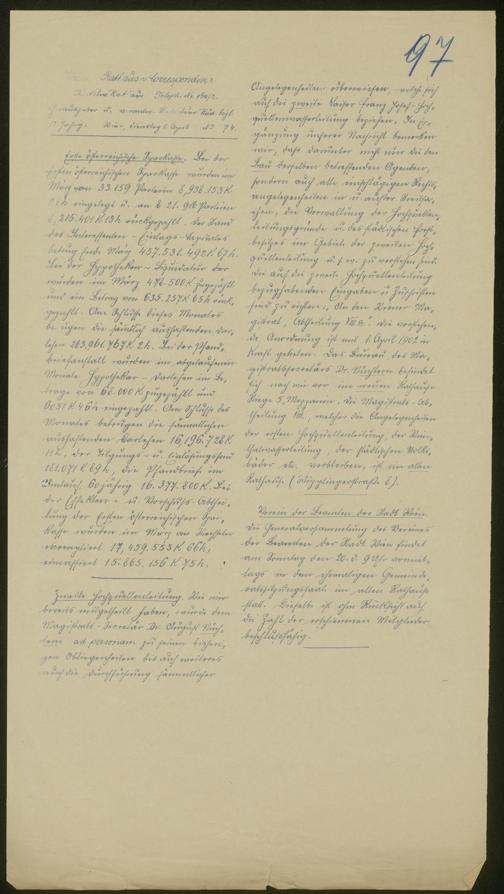 97
Rathaus-Correspondenz
Wien, Dienstag 8. April No 74.
Erste österreichische Sparkasse. Bei der
Ersten österreichischen Sparkasse wurden im
März von 33.159 Parteien 8,938.153 K
eingelegt u. an 21.916 Parteien
8,215.401 K 13 h rückgezahlt. Der Stand
des Interessenten-Einlags-Capitales
betrug Ende März 457,531.492 K 67 h.
Bei der Hypothekar-Liquidatur
wurden im März 472.500 K zugezählt
und ein Betrag von 635.257 K 65 h rück-
gezahlt. Am Schlusse dieses Monates
betrugen die sämtlich aushaftenden Dar-
lehen 283,961.767 K 2 h. Bei der Pfand-
briefanstalt wurden im abgelaufenen
Monate Hypothekar-Darlehen im Be-
trage von 60.000 K zugezählt und
K 46 h eingezahlt. Am Schlusse des
Monates betrugen die sämmtlichen
aushaftenden Darlehen 16,196.728 K
11 h, der Tilgungs- u. Einlösungsfond
181.071 K 69 h, die Pfandbriefe im
Umlauf, 60jährig 16.377.800 K. Bei
der Effekten- u. Vorschuß-Abthei-
lung der Ersten österreichischen Spar-
kasse wurden im März an Wechseln
escomptiert 17,459.553 K 66 h,
einkassiert 15.665,156 K 75 h.
Zweite Hochquellenleitung. Wie wir
bereits mitgetheilt haben, wurde dem
Magistrats-Secretär Dr. August Nüch-
tern ad personam zu seinen bisheri-
gen Obliegenheiten bis auf weiteres
auch die Durchführung sämmtlicher
Angelegenheiten überwiesen, welche sich
auf die zweite Kaiser Franz Josef-Hoch-
quellenwasserleitung beziehen. In Er-
gänzung unserer Nachricht bemerken
wir, daß darunter nicht nur die den
Bau derselben betreffenden Agenden,
sondern auch alle einschlägigen Rechts-
angelegenheiten in u. außer Streitsa-
chen, die Verwaltung der Hochquellen-
leitungsgründe u. des städtischen Forst-
besitzes im Gebiete der zweiten Hoch-
quellenleitung u. s. w. zu verstehen sind.
Die auf die zweite Hochquellenleitung
bezughabenden Eingaben u. Zuschriften
sind zu richten: „An den Wiener Ma-
gistrat, Abtheilung VIII a." Die vorstehen-
de Anordnung ist mit 1. April 1902 in
Kraft getreten. Das Bureau des Ma-
gistratssecretärs Dr. Nüchtern befindet
sich nach wie vor im neuen Rathause
Stiege 5, Mezzanin. Die Magistrats-Ab-
theilung VIII, welcher die Angelegenheiten
der ersten Hochquellenleitung, der Wien-
thalwasserleitung, der städtischen Volks-
bäder etc. verbleiben, ist im alten
Rathause (Wipplingerstraße 8).
Verein der Beamten der Stadt Wien.
Die Generalversammlung des Vereines
der Beamten der Stadt Wien findet
am Sonntag den 20. d. 9 Uhr vormit-
tags in dem ehemaligen Gemeinde-
rathssitzungssaale im alten Rathause
statt. Dieselbe ist ohne Rücksicht auf
die Zahl der erschienenen Mitglieder
beschlussfähig.